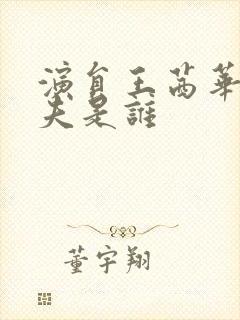 演員王茜華
夫是誰
董宇翔